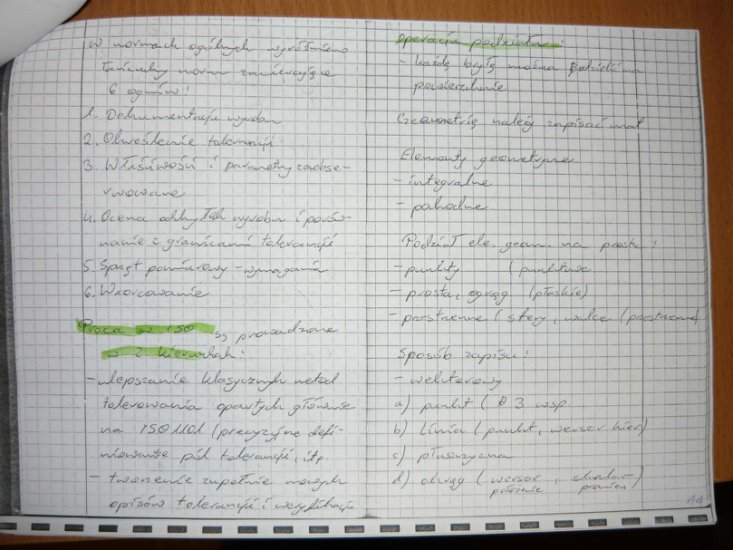 W normach ogólnych wyróżniono
łańcuchy norm zawierające
6 ogniw:
1. Dokumentacja wyrobu
2. Określenie tolerancji
3. Właściwości i parametry zaobse-
rwowane
4. Ocena odchyłek wyrobu i porów-
nanie z granicami tolerancji
5. Sprzęt pomiarowy - wymagania
6. Wzorcowanie
Praca w ISO są prowadzone
w 2 kierunkach:
- ulepszanie klasycznych metod
tolerowania opartych głównie
na ISO 1101 (precyzyjne defi-
niowanie pól tolerancji, itp
- tworzenie zupełnie nowych
opisów tolerancji i weryfikacji
operacja podziału:
- każdą bryłę można podzielić na
powierzchnie
Geometrię należy zapisać mat
Elementy geometryczne
- integralne
- pochodne
Podział ele. geom. na prost :
- punkty (punktowe
- prosta, okrąg (płaskie)
- przestrzenne (sfery, walce (przestrzenne)
Sposób zapisu:
- wektorowy
a) punkt ( 3 wsp
b) linia (punkt, wersor kier)
c) płaszczyzna
d) okrąg (wersor, skalar-
położenie promień